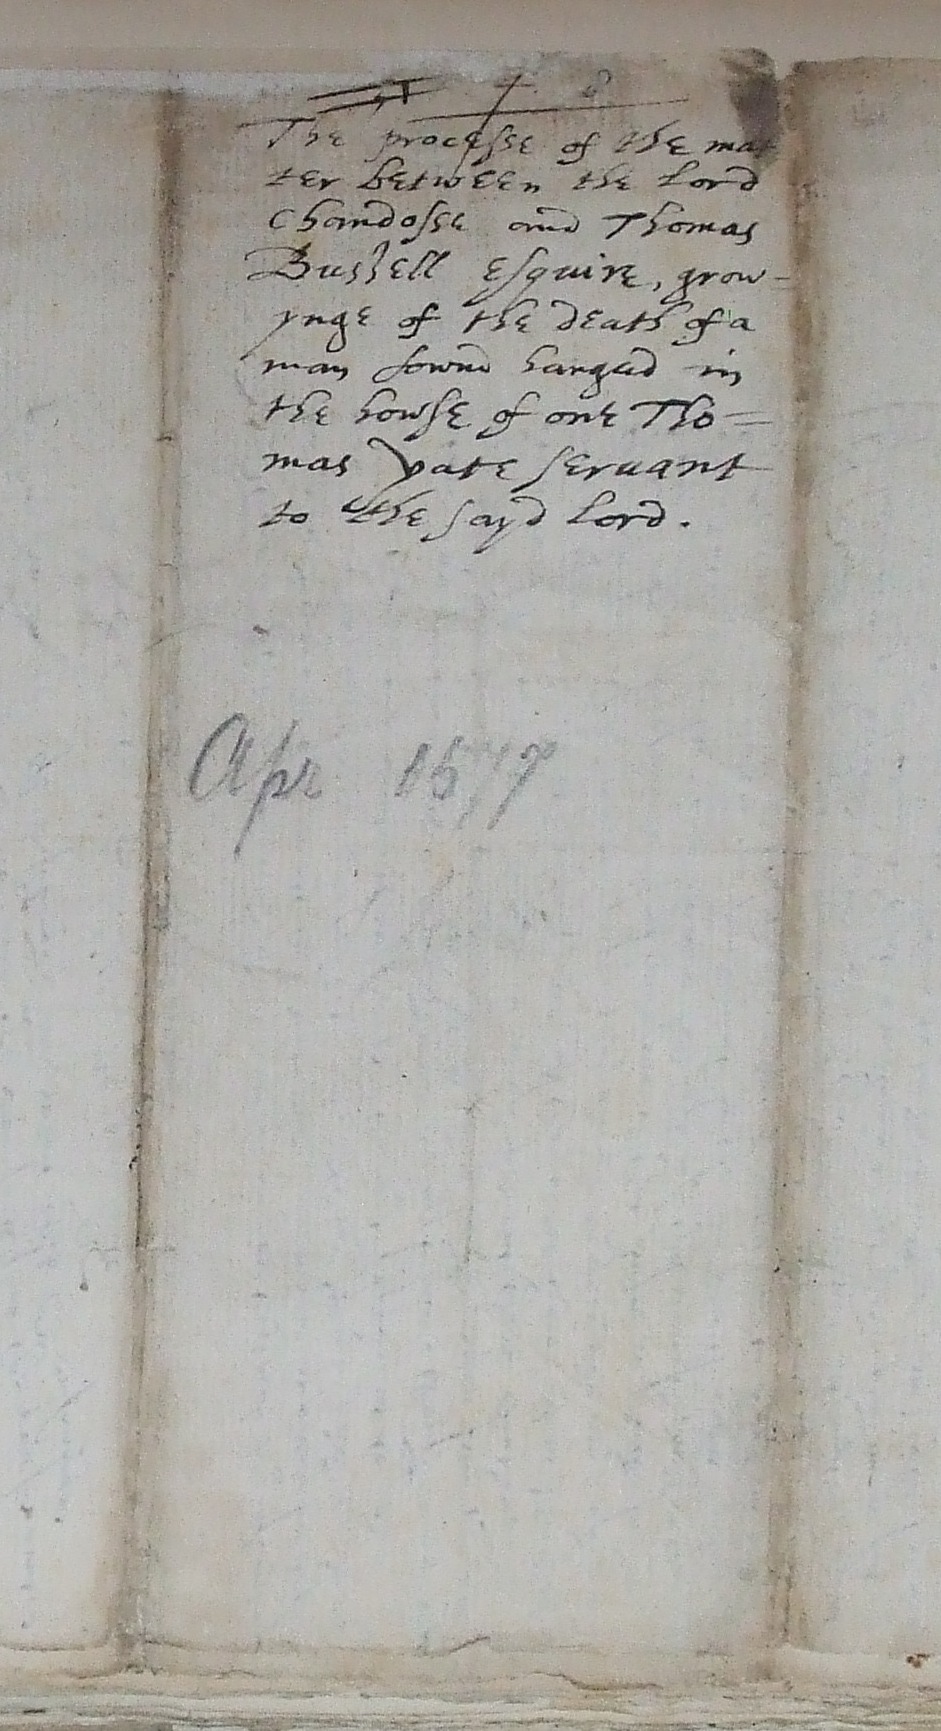 The processe of the mat
ter between the Lord
Chandosse and Thomas
Bussell Esquire, grow-
ynge of the death of a
man fownd hanged in
the howse of one Tho=
mas yate servant
to the sayd Lord.
Apr 1577